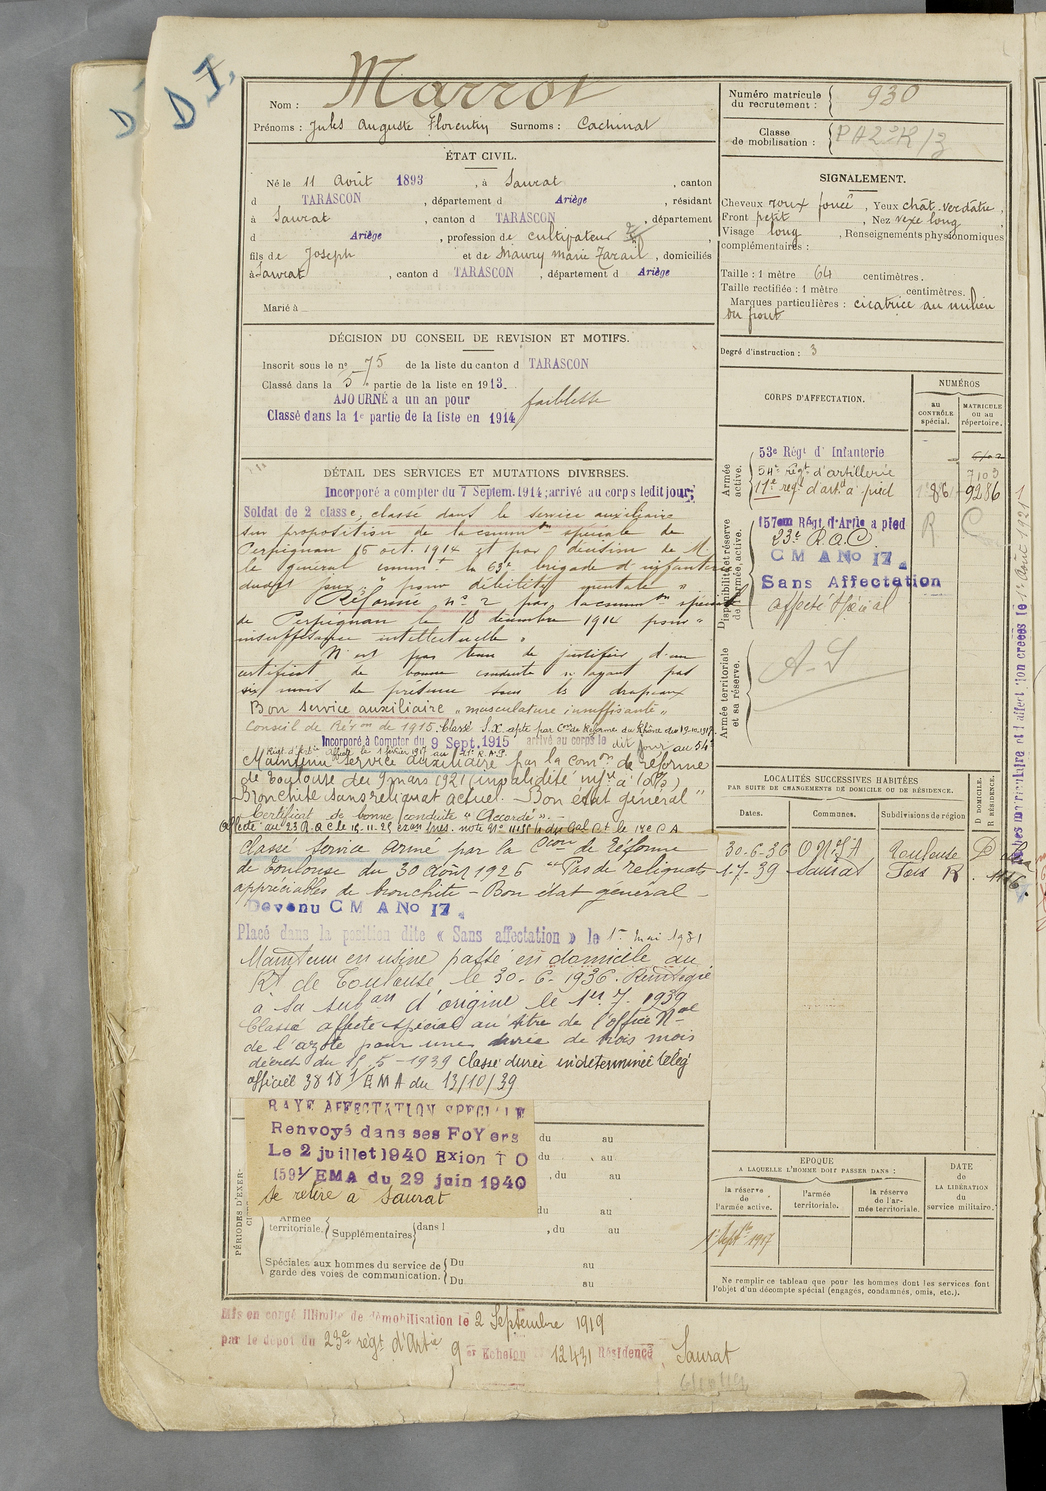 D I.
Nom : Marrot
Prénoms : Jules Auguste Florentin Surnoms : Cachinat
Numéro matricule du recrutement : 930
Classe de mobilisation :
ÉTAT CIVIL.
Né le 11 Août 1893, à Saurat, canton
d TARASCON, département d Ariège, résidant
à Saurat, canton d TARASCON, département
d Ariège, profession de cultivateur
fils de Joseph et de Maury Marie, domiciliés
à Saurat, canton d TARASCON, département d Ariège
Marié à
SIGNALEMENT.
Cheveux roux foncé, Yeux chât. verdâtre,
Front petit, Nez vexe long
Visage long, Renseignements physionomiques
complémentaires :
Taille : 1 mètre 64 centimètres.
Taille rectifiée : 1 mètre centimètres.
Marques particulières : cicatrice au milieu
du front
Degré d'instruction : 3
DÉCISION DU CONSEIL DE REVISION ET MOTIFS.
Inscrit sous le no 75 de la liste du canton d TARASCON
Classé dans la 5e partie de la liste en 1913.
AJOURNÉ a un an pour faiblesse
Classé dans la 1e partie de la liste en 1914
DÉTAIL DES SERVICES ET MUTATIONS DIVERSES.
Incorporé a compter du 7 Septem. 1914; arrivé au corps ledit jour;
Soldat de 2 classe; classé dans le service auxiliaire
sur proposition de la common spéciale de
Perpignan 15 oct. 1914 et par décision de M.
le général commt la 63e brigade d'infanterie
dudit jour " pour débilité mentale "
Réformé no 2 par la common spéciale
de Perpignan le 18 décembre 1914 pour "
insuffisance intellectuelle "
N'est pas tenu de justifier d'un
certificat de bonne conduite n'ayant pas
six mois de présence sous les drapeaux
Bon service auxiliaire " musculature insuffisante "
Conseil de Révon de 1915. Classé S.X apte par Con de Réforme du Rhône du 19.10.1917
Incorporé à Compter du 9 Sept. 1915 arrivé au corps le dit jour au 54e
Maintenu service auxiliaire par la Comon de réforme
de Toulouse du 9 mars 1921 (invalidité infre à 10%)
Bronchite sans reliquat actuel. - Bon état général "
Certificat de bonne conduite " Accordé ".
Classé service armé par la Con de Réforme
de Toulouse du 30 août 1926 " Pas de reliquats
appréciables de bronchite - Bon état général -
Devenu C M A No 17.
Placé dans la position dite « Sans affectation » le 1er mai 1931
Maintenu en usine passé en domicile au
Rt de Toulouse le 30-6-1936. Réintégré
à sa subon d'origine le 1er 7. 1939
Classé affecté spécial au titre de l'office Nal
de l'azote pour une durée de trois mois
décret du 15-5-1939 classé durée indéterminée télég
officiel 3818 1/EMA du 13/10/39
CORPS D'AFFECTATION.
NUMÉROS
au CONTRÔLE spécial.
MATRICULE OU au répertoire.
Armée active.
53e Régt d'Infanterie
54e régt d'artillerie 7103
11e régt d'artie à pied 9286
Disponibilité et réserve de l'armée active.
157em Régt d'Artie a pied
23e R.A.C.
C M A No 17.
Sans Affectation
affecté spécial
R C
Armée territoriale et sa réserve.
A-S
LOCALITÉS SUCCESSIVES HABITÉES
PAR SUITE DE CHANGEMENTS DE DOMICILE OU DE RÉSIDENCE.
Dates. Communes. Subdivisions de région D DOMICILE. R RÉSIDENCE.
30-6-36 O N I A Toulouse D
1-7-39 Saurat Foix R.
RAYÉ AFFECTATION SPECIALE
Renvoyé dans ses FoYers
Le 2 juillet 1940 Exion T O
1591/EMA du 29 juin 1940
se retire à Saurat
PÉRIODES D'EXERCICES
du au
du au
, du au
du au
Armée territoriale. Supplémentaires dans l , du au
Spéciales aux hommes du service de garde des voies de communication.
Du au
Du au
EPOQUE
A LAQUELLE L'HOMME DOIT PASSER DANS :
la réserve de l'armée active.
l'armée territoriale.
la réserve de l'armée territoriale.
DATE de LA LIBÉRATION du service militaire.
1er Septbre 1917
Ne remplir ce tableau que pour les hommes dont les services font
l'objet d'un décompte spécial (engagés, condamnés, omis, etc.).
Mis en congé illimité de démobilisation le 2 Septembre 1919
par le dépot du 23e régt d'Artie 9er Echelon 12431 Résidence Saurat